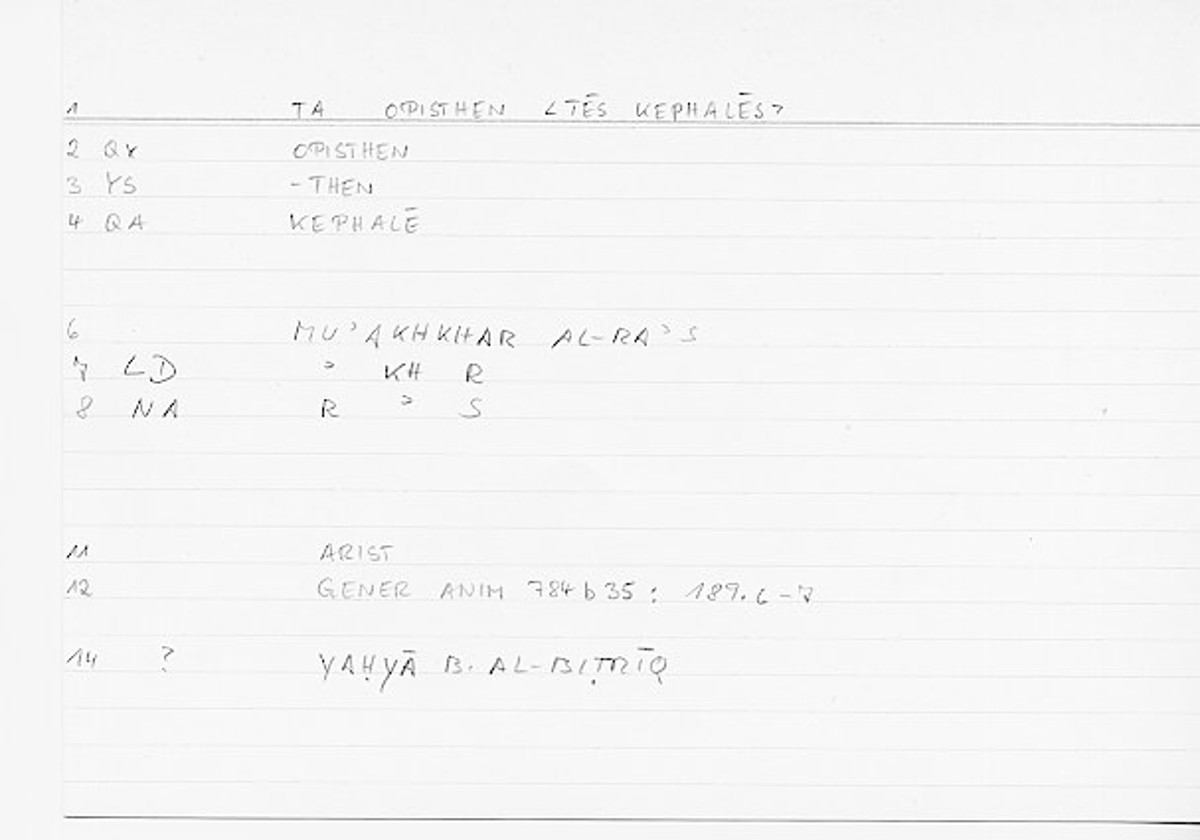 1 TA OPISTHEN <TĒS KEPHALĒS>
2 QX OPISTHEN
3 YS -THEN
4 QA KEPHALĒ
6 MUʾAKHKHAR AL-RAʾS
7 LD ʾ KH R
8 NA R ʾ S
11 ARIST
12 GENER ANIM 784b35 : 189.6-7
14 ? YAḤYĀ B. AL-BIṬRĪQ